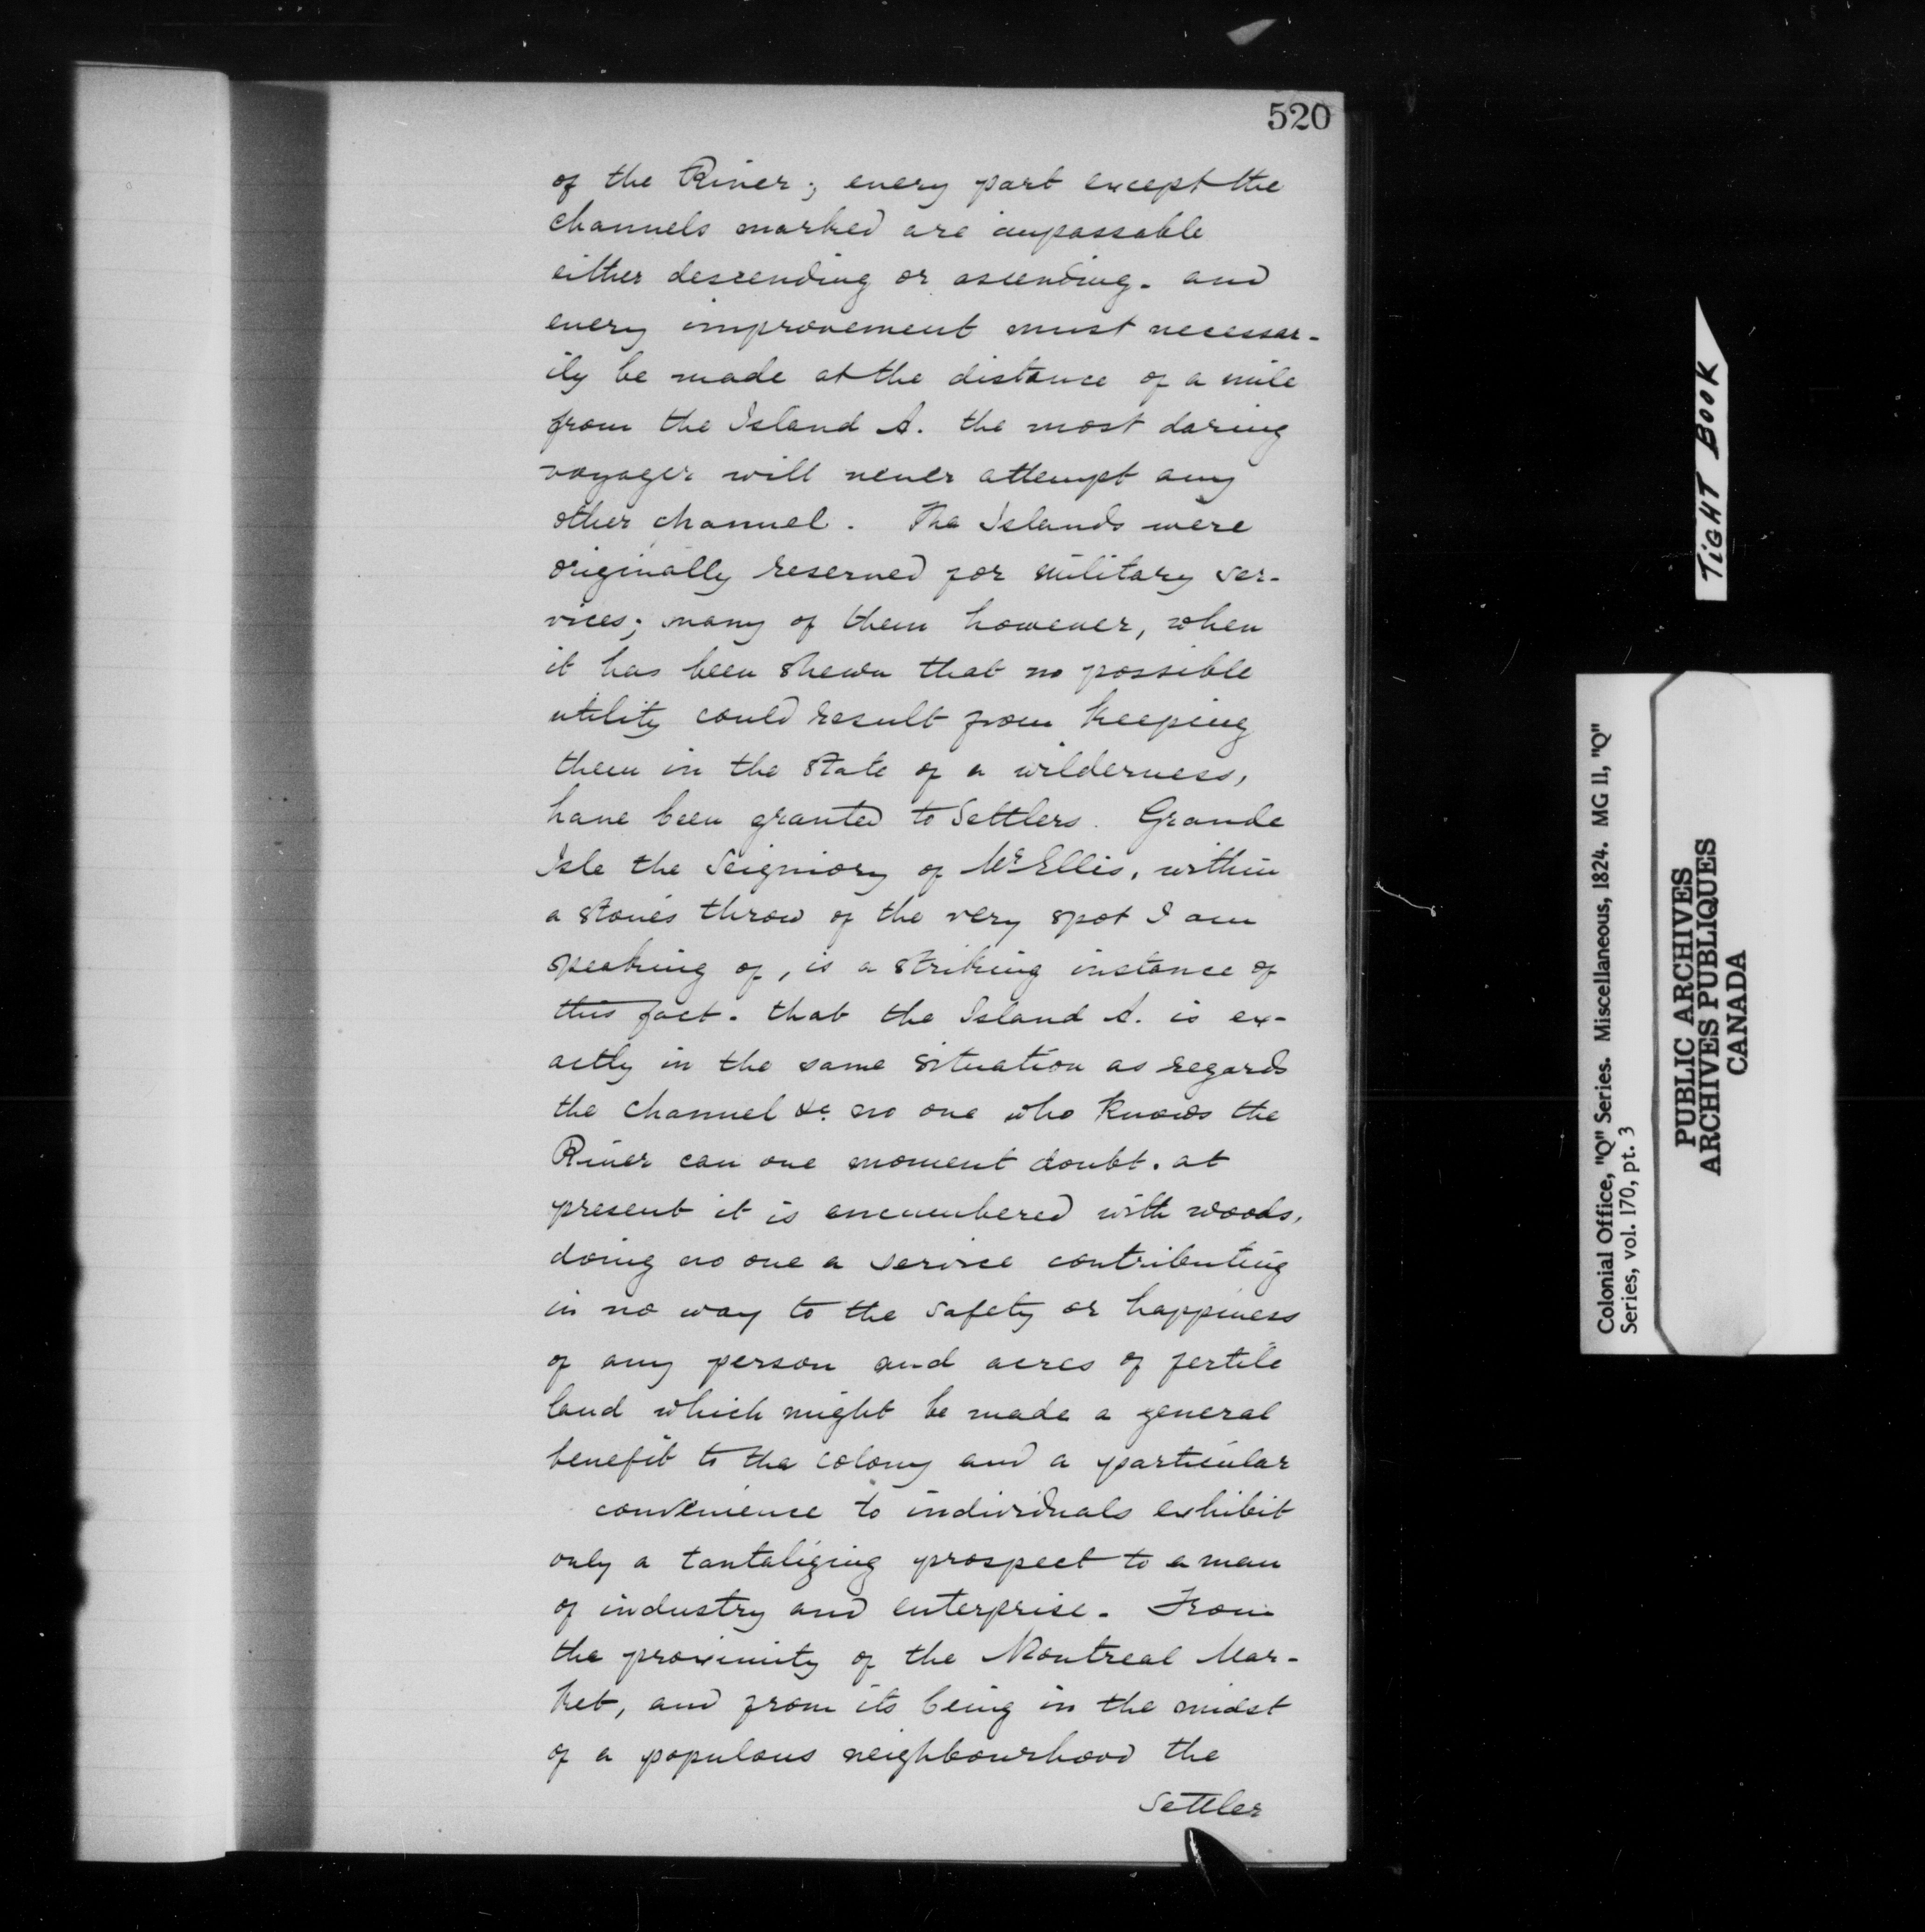 520
of the River; every part except the
channels marked are impassable
either descending or ascending. and
every improvement must necessar-
ily be made at the distance of a mile
from the Island A. the most daring
voyager will never attempt any
other channel. The Islands were
originally reserved for military ser-
vices; many of them however, when
it has been shewn that no possible
utility could result from keeping
them in the state of a wilderness,
have been granted to Settlers. Grande
Isle the Seigniory of Mr Ellis, within
a stone's throw of the very spot I am
speaking of, is a striking instance of
this fact. that the Island A. is ex-
actly in the same situation as regards
the channel &c. no one who knows the
River can one moment doubt. at
present it is encumbered with woods,
doing no one a service contributing
in no way to the safety or happiness
of any person and acres of fertile
land which might be made a general
benefit to the colony and a particular
convenience to individuals exhibit
only a tantalizing prospect to a man
of industry and enterprise. From
the proximity of the Montreal Mar-
ket, and from its being in the midst
of a populous neighbourhood the
Settler
TIGHT BOOK
Colonial Office, "Q" Series. Miscellaneous, 1824. MG 11, "Q"
Series, vol. 170, pt. 3
PUBLIC ARCHIVES
ARCHIVES PUBLIQUES
CANADA